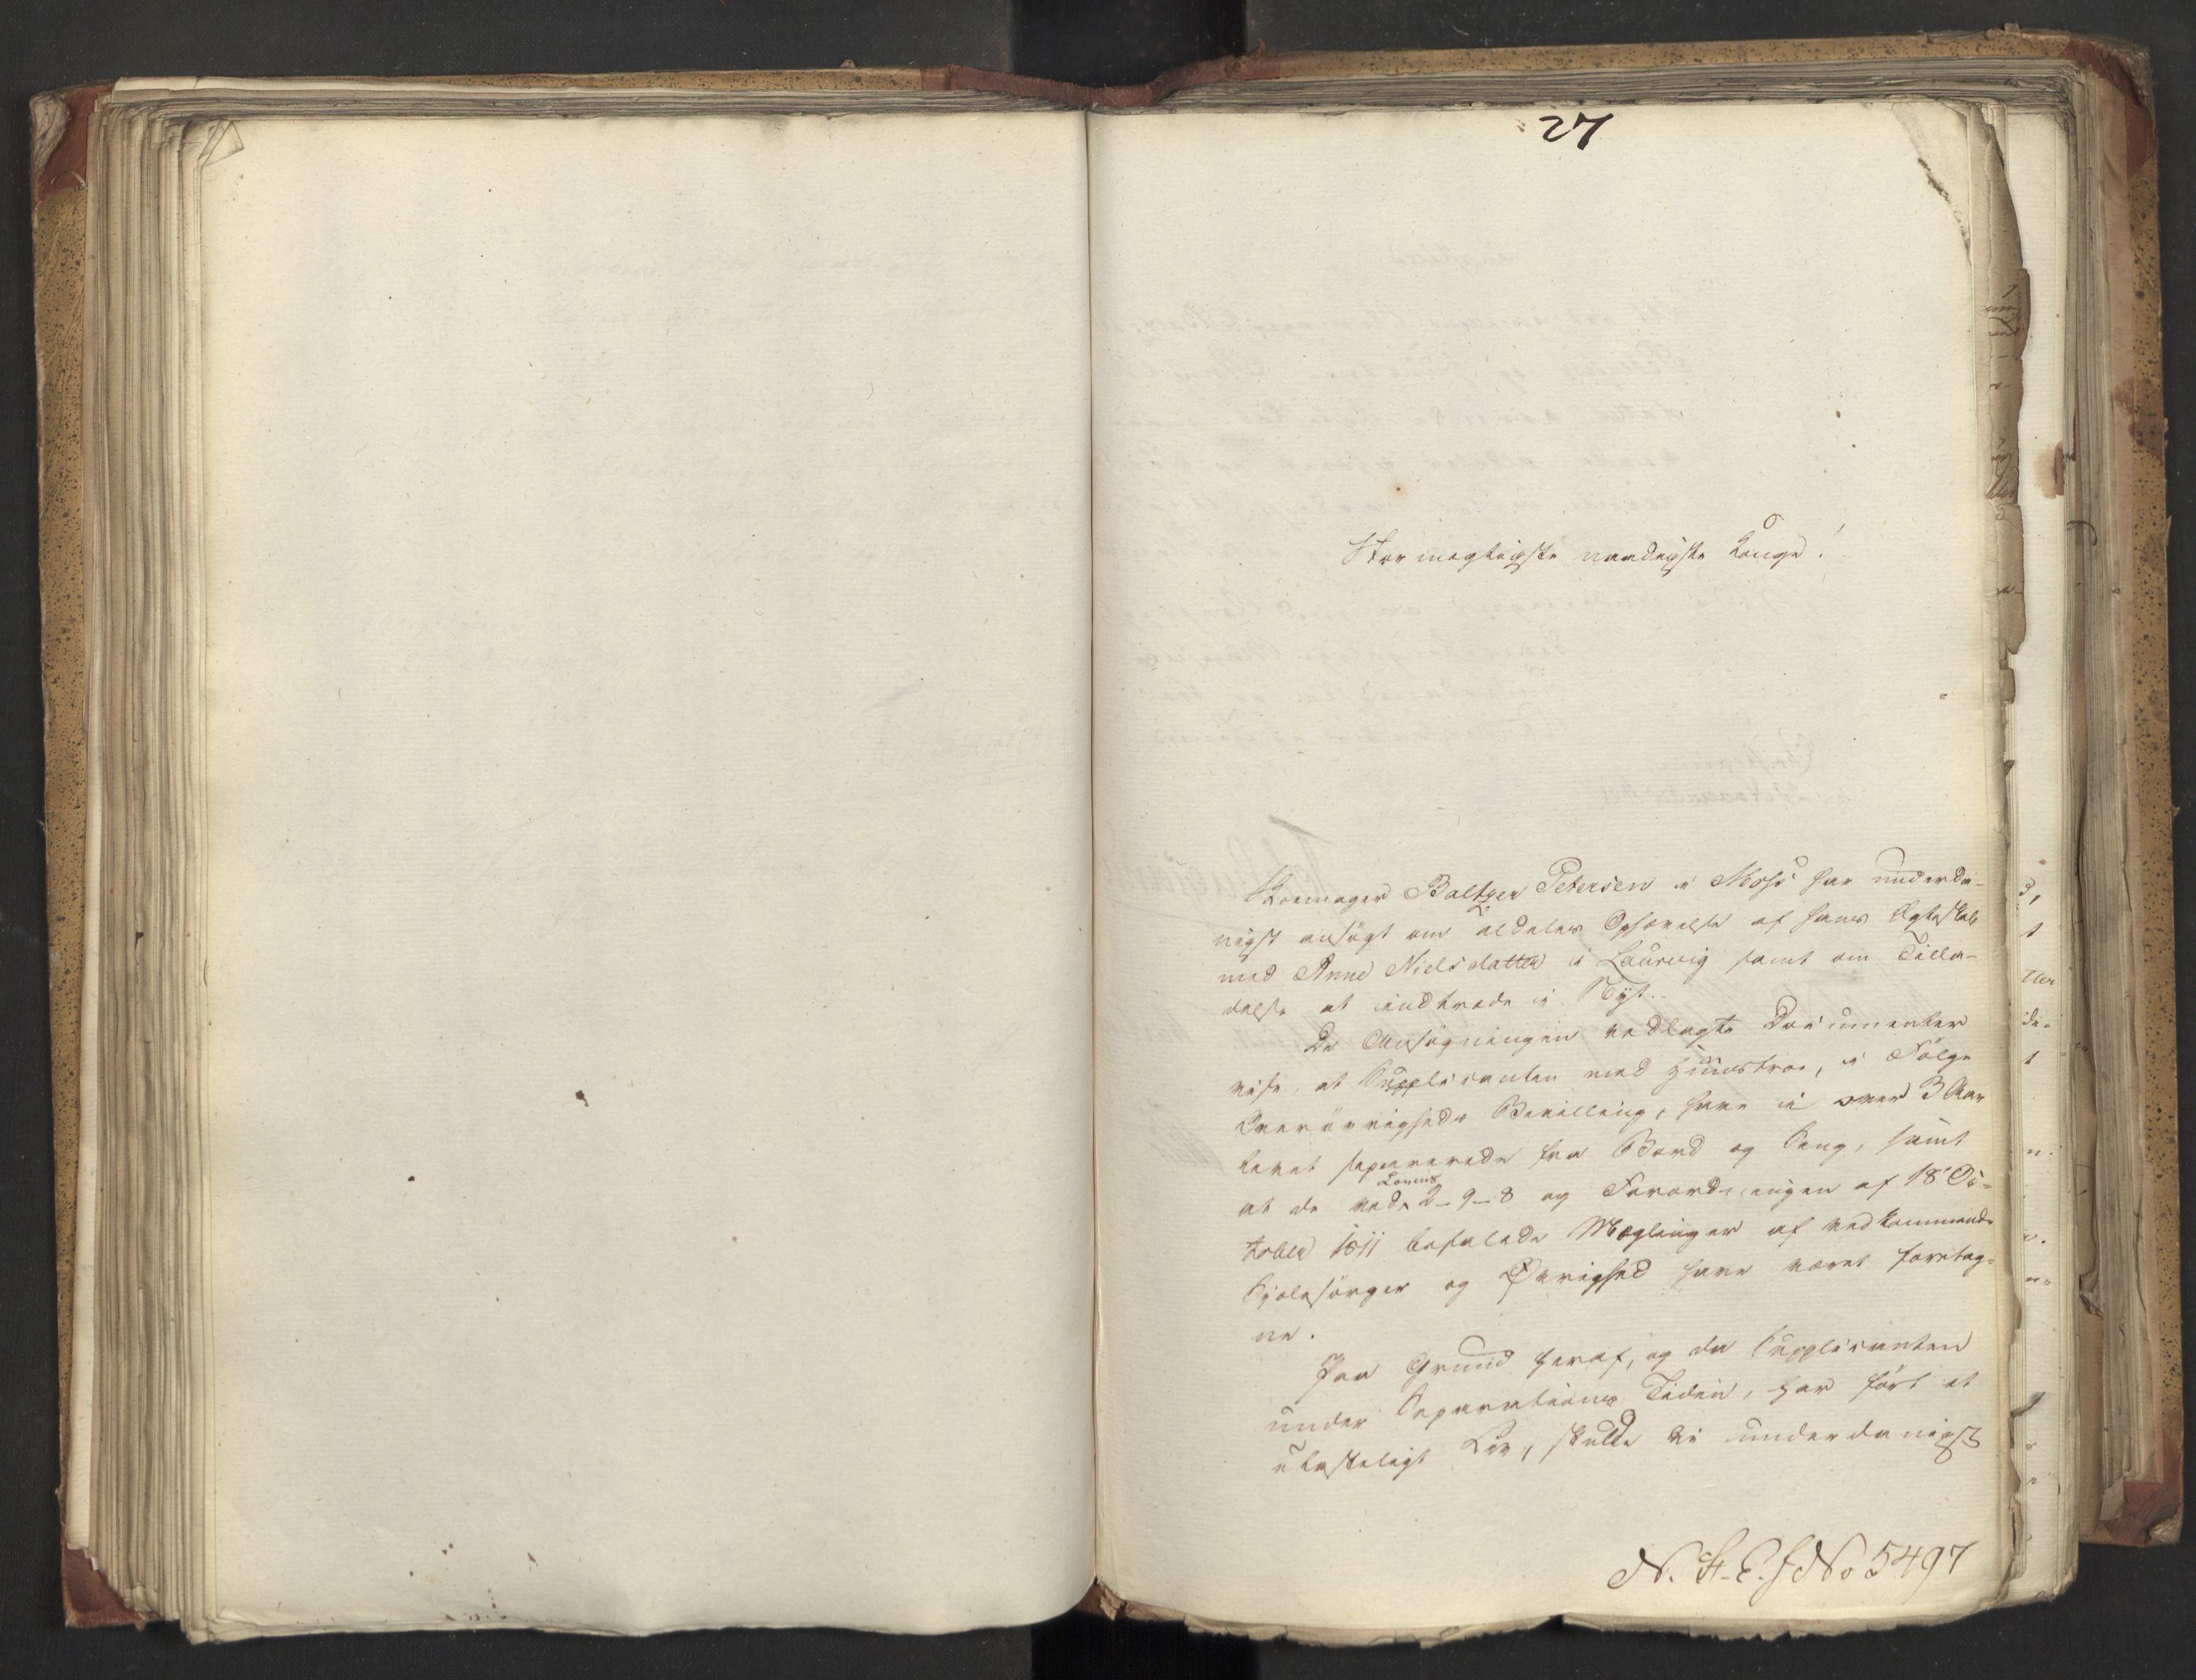 27
Stormægtigste naadigste Konge!
Skoemager Baltzer Petersen i Moss har underda-
nigst ansøgt om aldeles Ophævelse af hans Egteskab
med Anne Nielsdatter i Laurvig samt om Tilla-
delse at indtræde i Nyt.
De Ansøgningen vedlagte Documenter
vise, at Supplicanten med Hustroe, i Følge
Overøvrigheds Bevilling, have i over 3 Aar
levet separerede fra Bord og Seng, samt
at de ved Lovens 2-9-8 og Forordningen af 18 Oc-
tober 1811 befalede Mæglinger af vedkommende
Sjelesørger og Øvrighed have været foretag-
ne.
Paa Grund heraf, og da Supplicanten
under Separations Tiden, har ført et
ulasteligt Lev, skulle vi underdanigst
No 5497